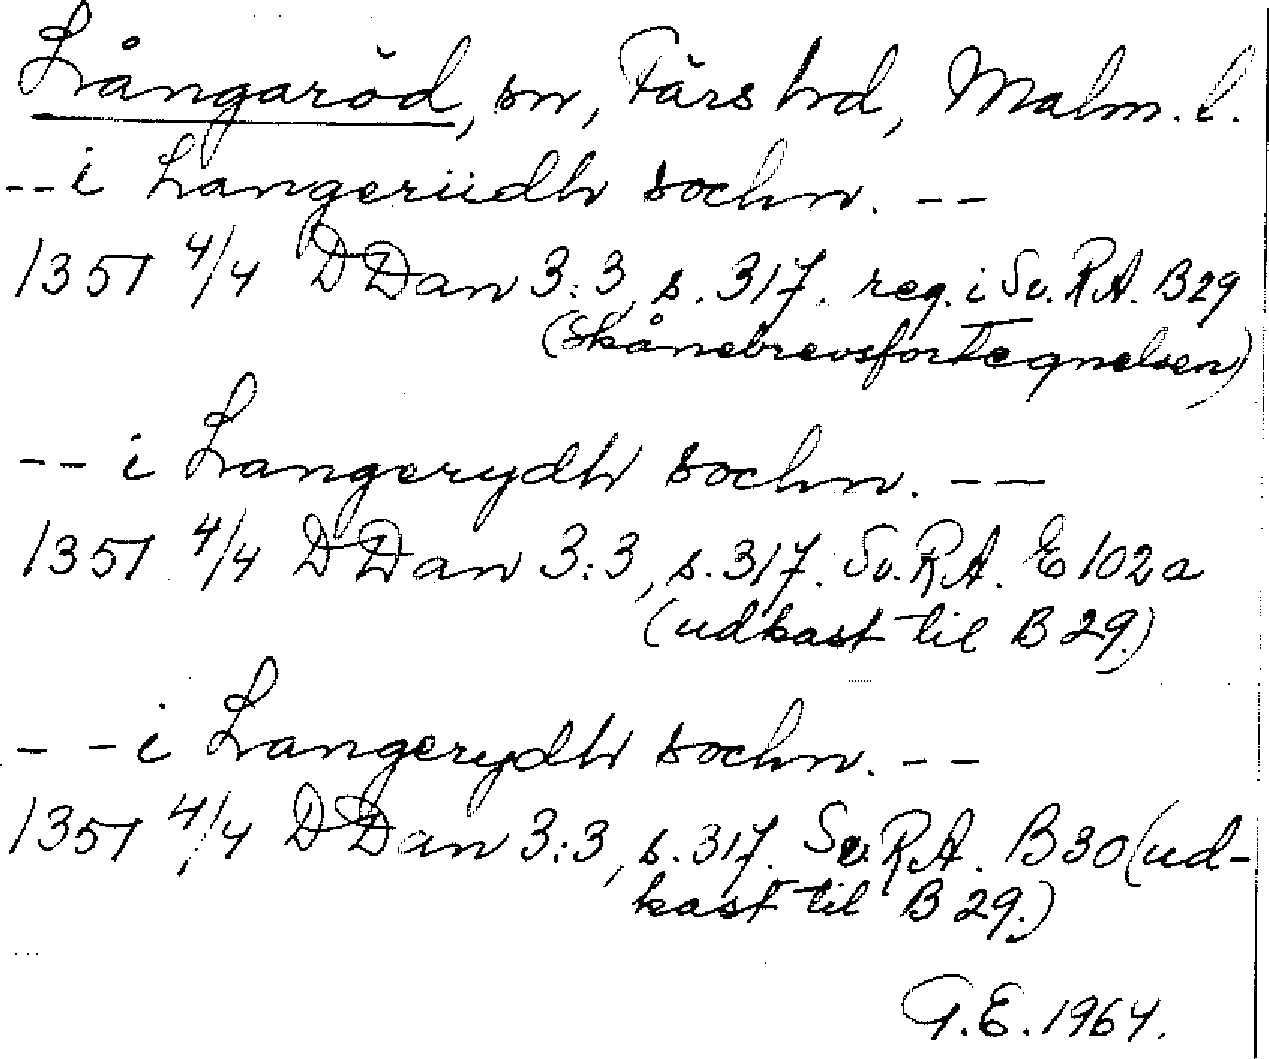 Långaröd, sn, Färs hd, Malm. l.
-- i Langeriidh sochn. --
1351 4/4 DDan 3:3, s. 317. reg. i Sv. RA. B29
(Skånebrevsfortegnelsen)
-- i Langerydh sochn. --
1351 4/4 DDan 3:3, s. 317. Sv. RA. E 102a
(udkast til B 29.)
-- i Langerydh sochn. --
1351 4/4 DDan 3:3, s. 317. Sv. RA. B 30 (ud-
kast til B 29.)
G.E. 1964.